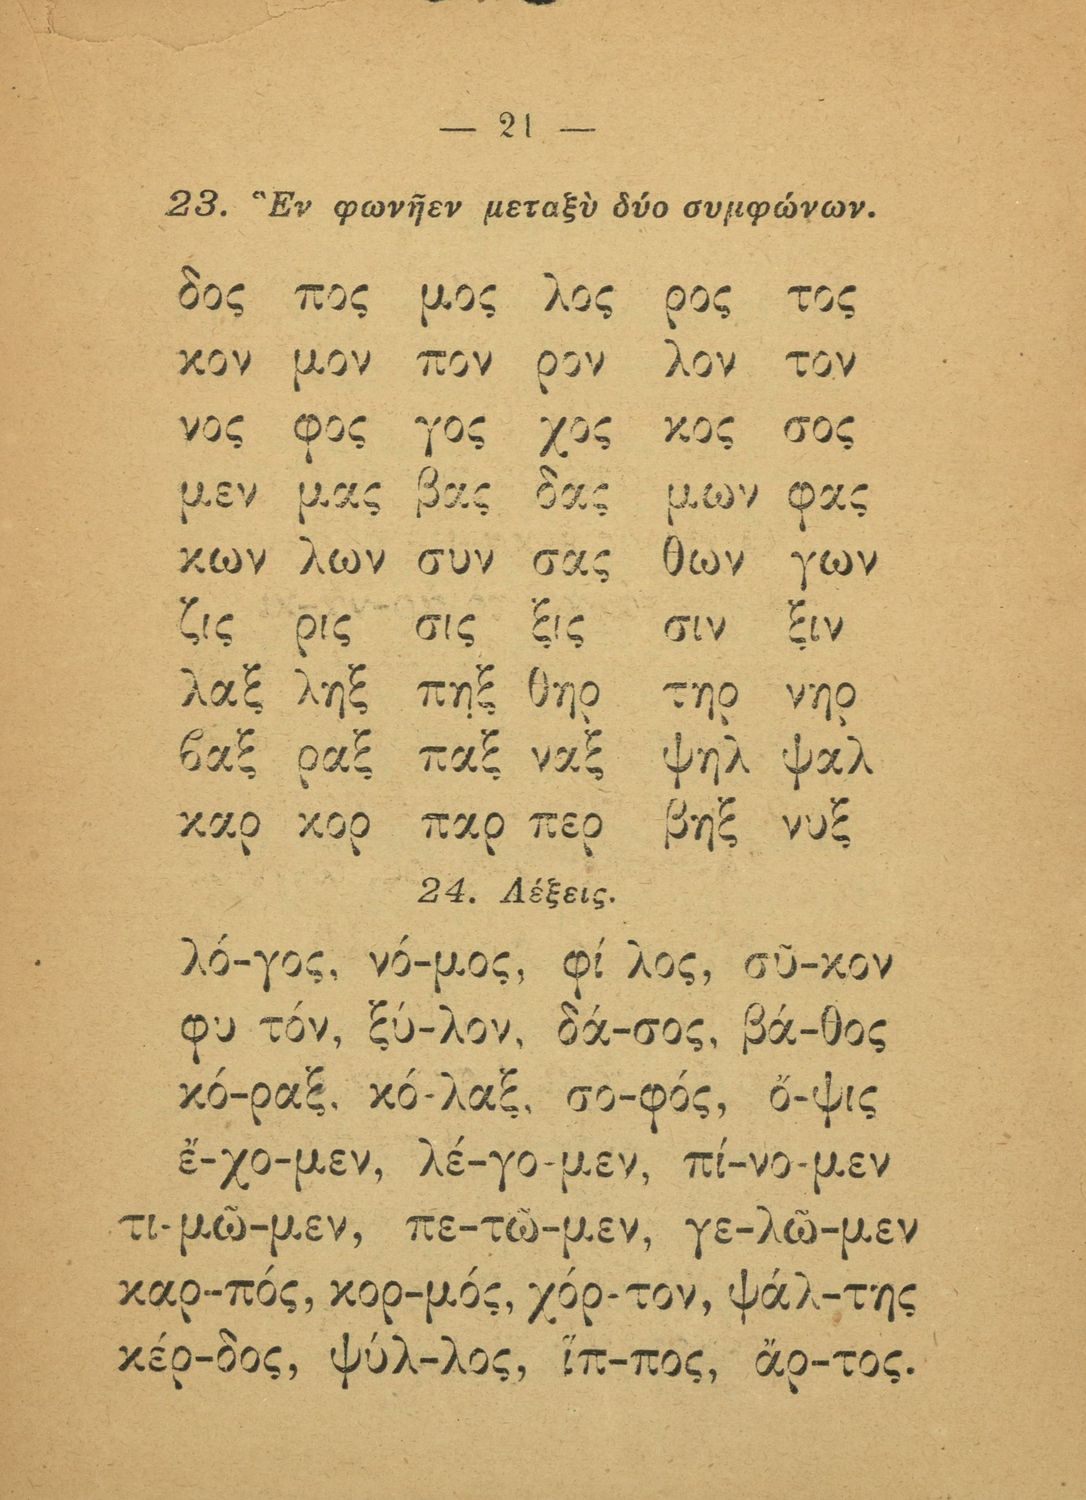 — 21 —
23. Ἓν φωνῆεν μεταξὺ δύο συμφώνων.
δος πος μος λος ρος τος
κον μον πον ρον λον τον
νος φος γος χος κος σος
μεν μας βας δας μων φας
κων λων συν σας θων γων
ζις ρις σις ξις σιν ξιν
λαξ ληξ πηξ θηρ τηρ νηρ
βαξ ραξ παξ ναξ ψηλ ψαλ
καρ κορ παρ περ βηξ νυξ
24. Λέξεις.
λό-γος, νό-μος, φί λος, σῦ-κον
φυ τόν, ξύ-λον, δά-σος, βά-θος
κό-ραξ, κό-λαξ, σο-φός, ὄ-ψις
ἔ-χο-μεν, λέ-γο-μεν, πί-νο-μεν
τι-μῶ-μεν, πε-τῶ-μεν, γε-λῶ-μεν
καρ-πός, κορ-μός, χόρ-τον, ψάλ-της
κέρ-δος, ψύλ-λος, ἵπ-πος, ἄρ-τος.